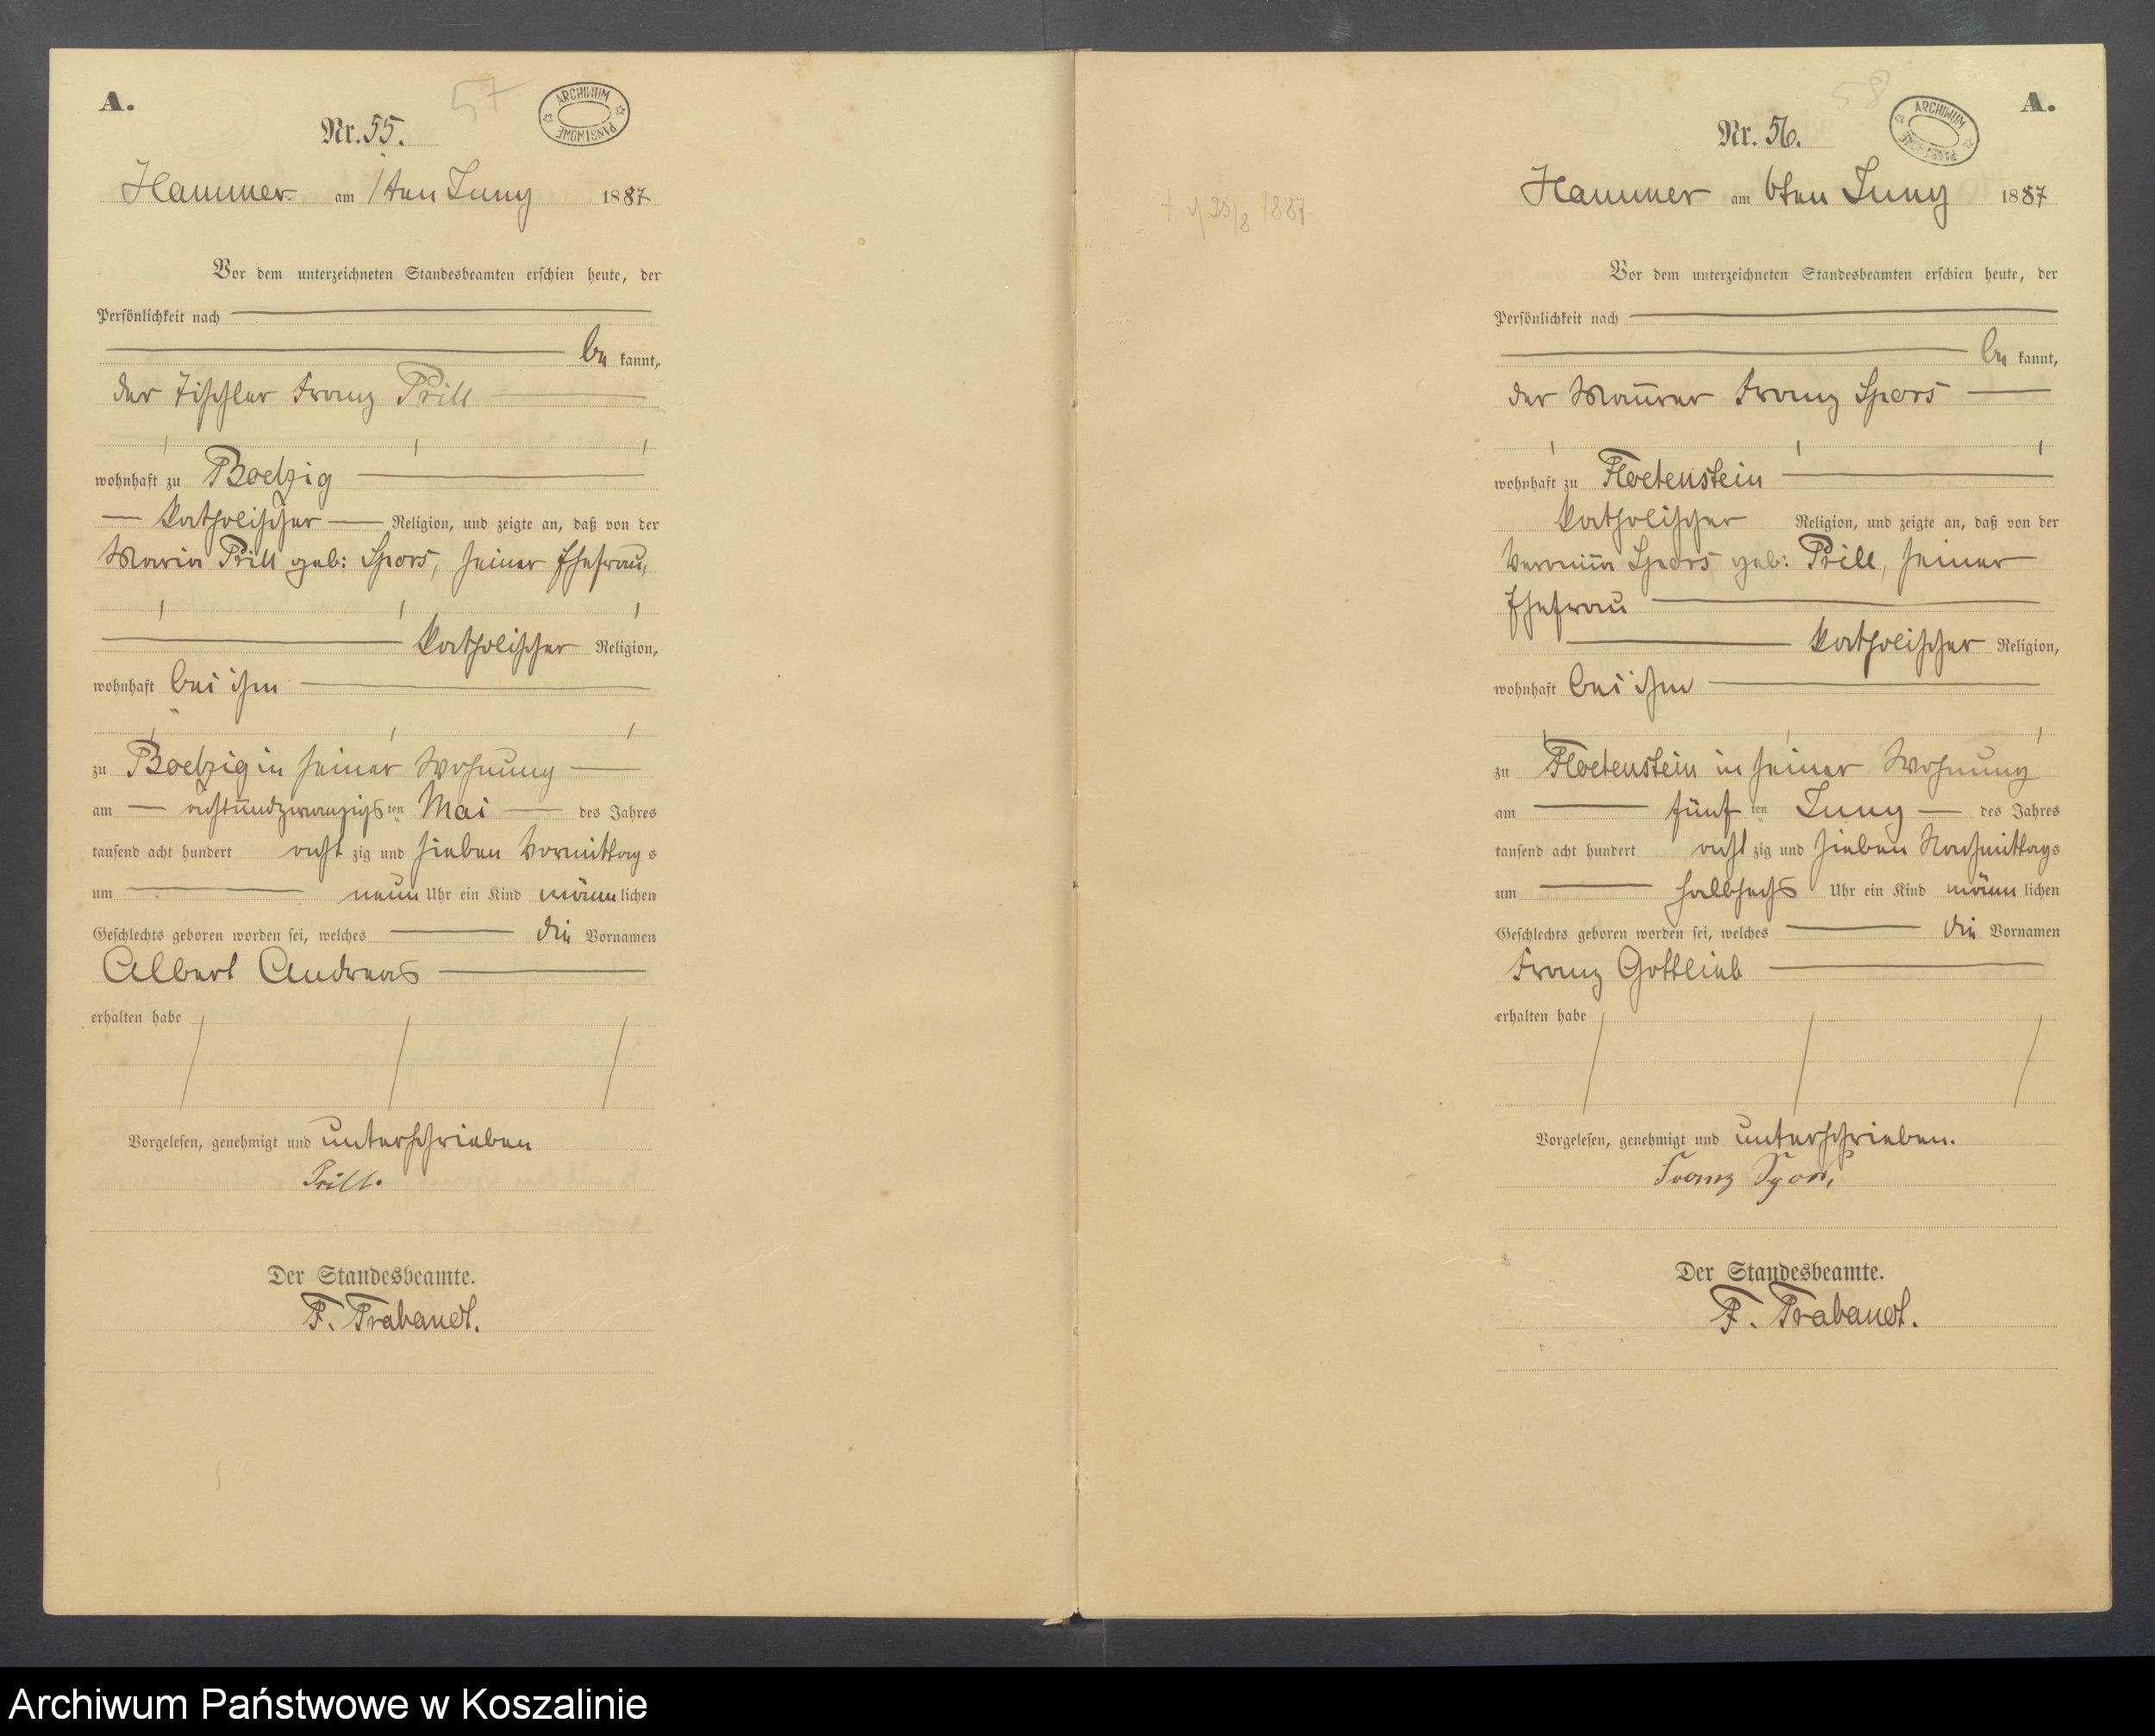 A.
57
ARCHIWUM PAŃSTWOWE
Nr. 55.
Hammer am 1ten Juny 1887
Vor dem unterzeichneten Standesbeamten erschien heute, der
Persönlichkeit nach
be kannt,
der Tischler Franz Prill
wohnhaft zu Boelzig
katholischer Religion, und zeigte an, daß von der
Maria Prill geb: Spors, seiner Ehefrau,
katholischer Religion,
wohnhaft bei ihm
zu Boelzig in seiner Wohnung
am achtundzwanzigsten Mai des Jahres
tausend acht hundert acht zig und sieben Vormittags
um neun Uhr ein Kind männlichen
Geschlechts geboren worden sei, welches die Vornamen
Albert Andreas
erhalten habe
Vorgelesen, genehmigt und unterschrieben
Prill.
Der Standesbeamte.
F. Trabandt.
58
ARCHIWUM PAŃSTWOWE
A.
Nr. 56.
Hammer am 6ten Juny 1887
+ 25/8 1887
Vor dem unterzeichneten Standesbeamten erschien heute, der
Persönlichkeit nach
be kannt,
der Maurer Franz Spors
wohnhaft zu Floetenstein
katholischer Religion, und zeigte an, daß von der
Spors geb: Prill, seiner
Ehefrau
katholischer Religion,
wohnhaft bei ihm
zu Floetenstein in seiner Wohnung
am fünf ten Juny des Jahres
tausend acht hundert acht zig und sieben Nachmittags
um halbsechs Uhr ein Kind männ lichen
Geschlechts geboren worden sei, welches die Vornamen
Franz Gottlieb
erhalten habe
Vorgelesen, genehmigt und unterschrieben.
Franz Spors
Der Standesbeamte.
F. Trabandt.
Archiwum Państwowe w Koszalinie